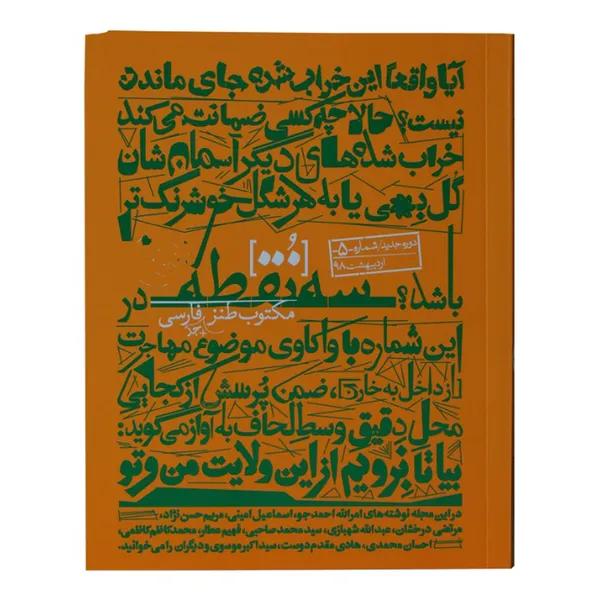 آیا واقعاً این خراب‌شده جای ماندن
نیست؟ حالا چه کسی ضمانت می‌کند
خراب شده‌های دیگر آسمان‌شان
گُل‌بهی یا به هر شکل خوشرنگ‌تر
دوره جدید/شماره -۵-
اردیبهشت ۹۸
[۰۰۰ُ]
باشد؟ سه نقطه در
مکتوب طنز فارسی
این شماره با واکاوی موضوع مهاجرت
[از داخل به خارج]، ضمن پُرسش از کجایی
محل دقیق وسط لحاف به آواز می‌گوید:
بیا تا برویم از این ولایت من و تو
در این مجله نوشته‌های امرالله احمدجو، اسماعیل امینی، مریم حسن نژاد،
مرتضی درخشان، عبدالله شهبازی، سید محمد صاحبی، فهیم عطار، محمدکاظم کاظمی،
احسان محمدی، هادی مقدم دوست، سید اکبر موسوی و دیگران را می‌خوانید.